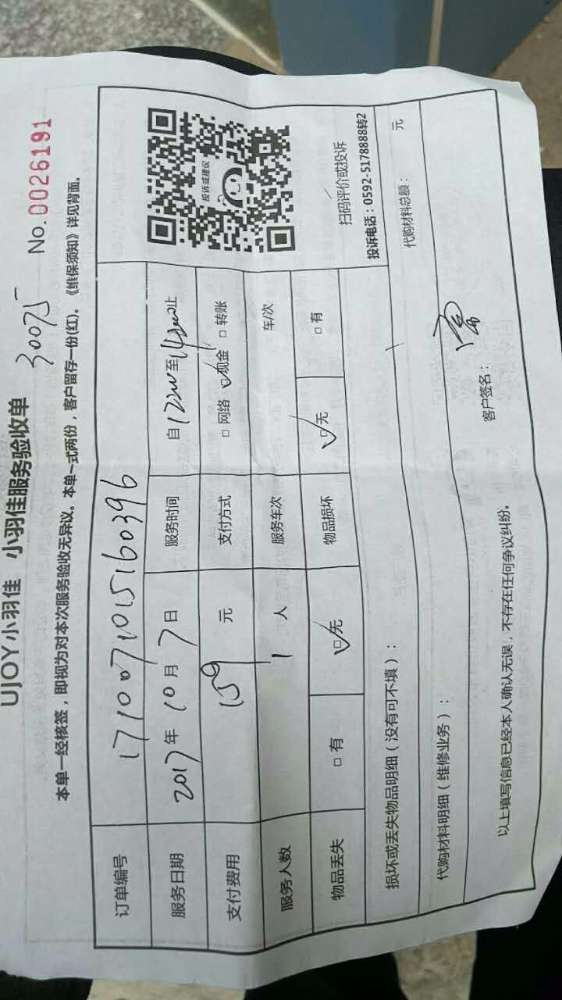 UJOY小羽佳 小羽佳服务验收单
30075 No.0026191
本单一经核签，即视为对本次服务验收无异议。本单一式两份，客户留存一份(红)。《维保须知》详见背面。
订单编号 1710071015160396
服务日期 2017年10月7日 服务时间 自1200至1400止
支付费用 159元 支付方式 □网络 □现金 □转账
服务人数 1人 服务车次 车/次
物品丢失 □有 □无 物品损坏 □无 □有
投诉或建议
扫码评价或投诉
投诉电话：0592-5178888转2
损坏或丢失物品明细（没有可不填）：
代购材料明细（维修业务）： 代购材料总额： 元
以上填写信息已经本人确认无误，不存在任何争议纠纷。 客户签名：